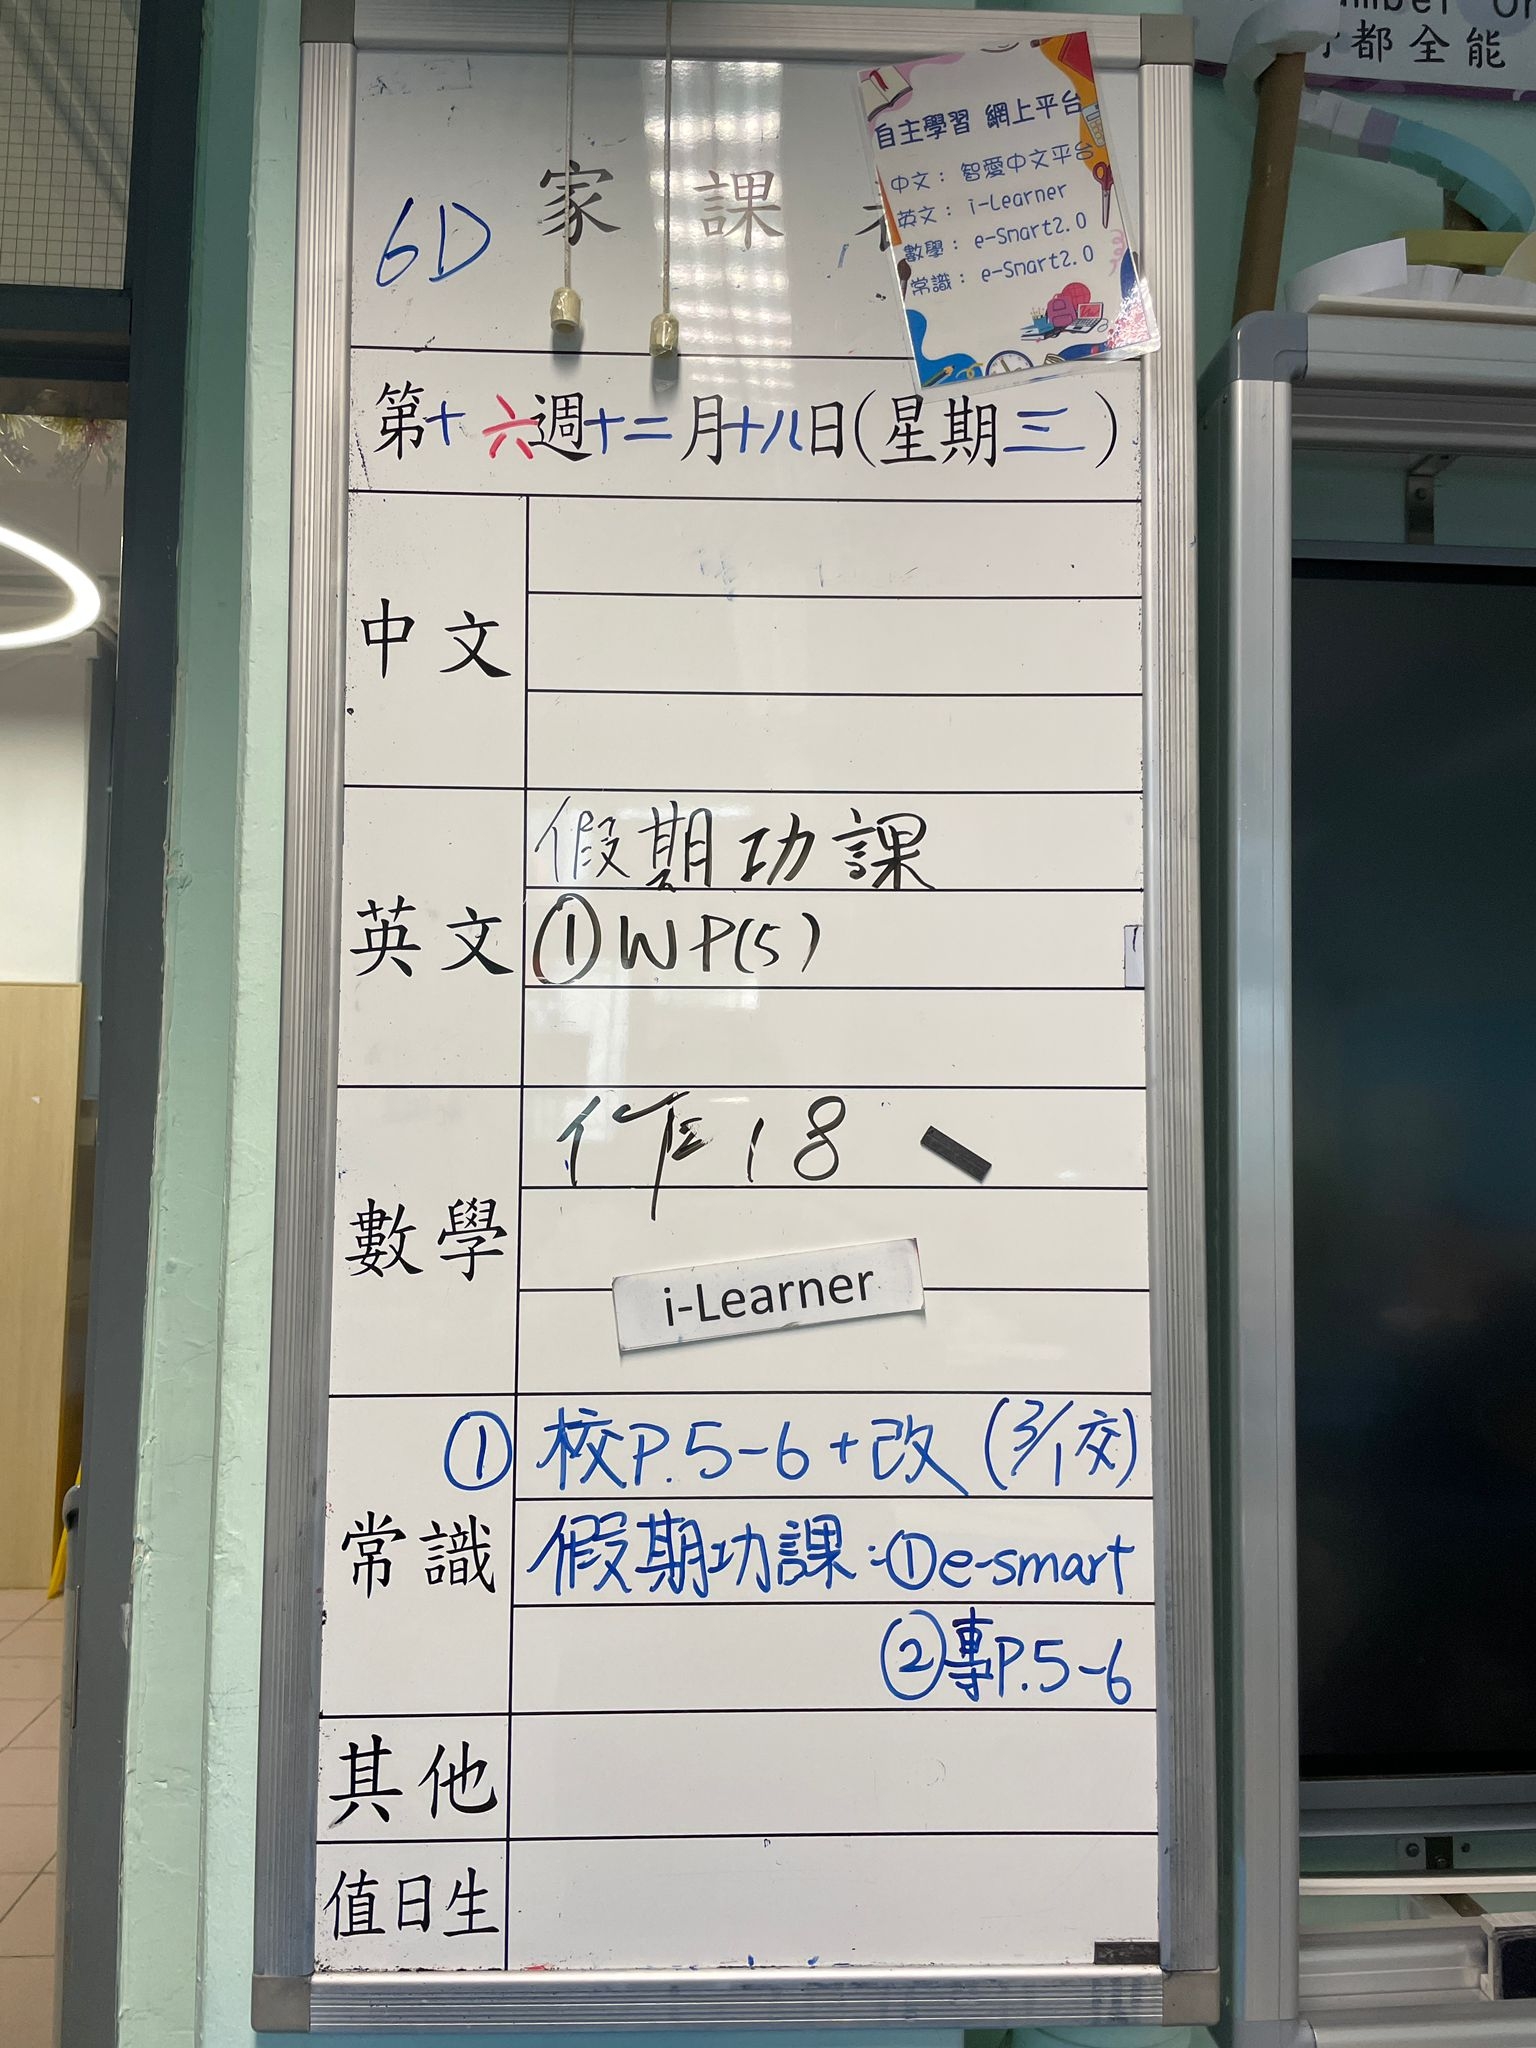 mber On
都全能
自主學習 網上平台
中文：智愛中文平台
英文：i-Learner
數學：e-Smart2.0
常識：e-Smart2.0
6D 家課
第十六週十二月十八日(星期三)
中文
英文
假期功課
①WP(5)
數學
作18
i-Learner
常識
① 校P.5-6+改 (3/1交)
假期功課:①e-smart
②專P.5-6
其他
值日生